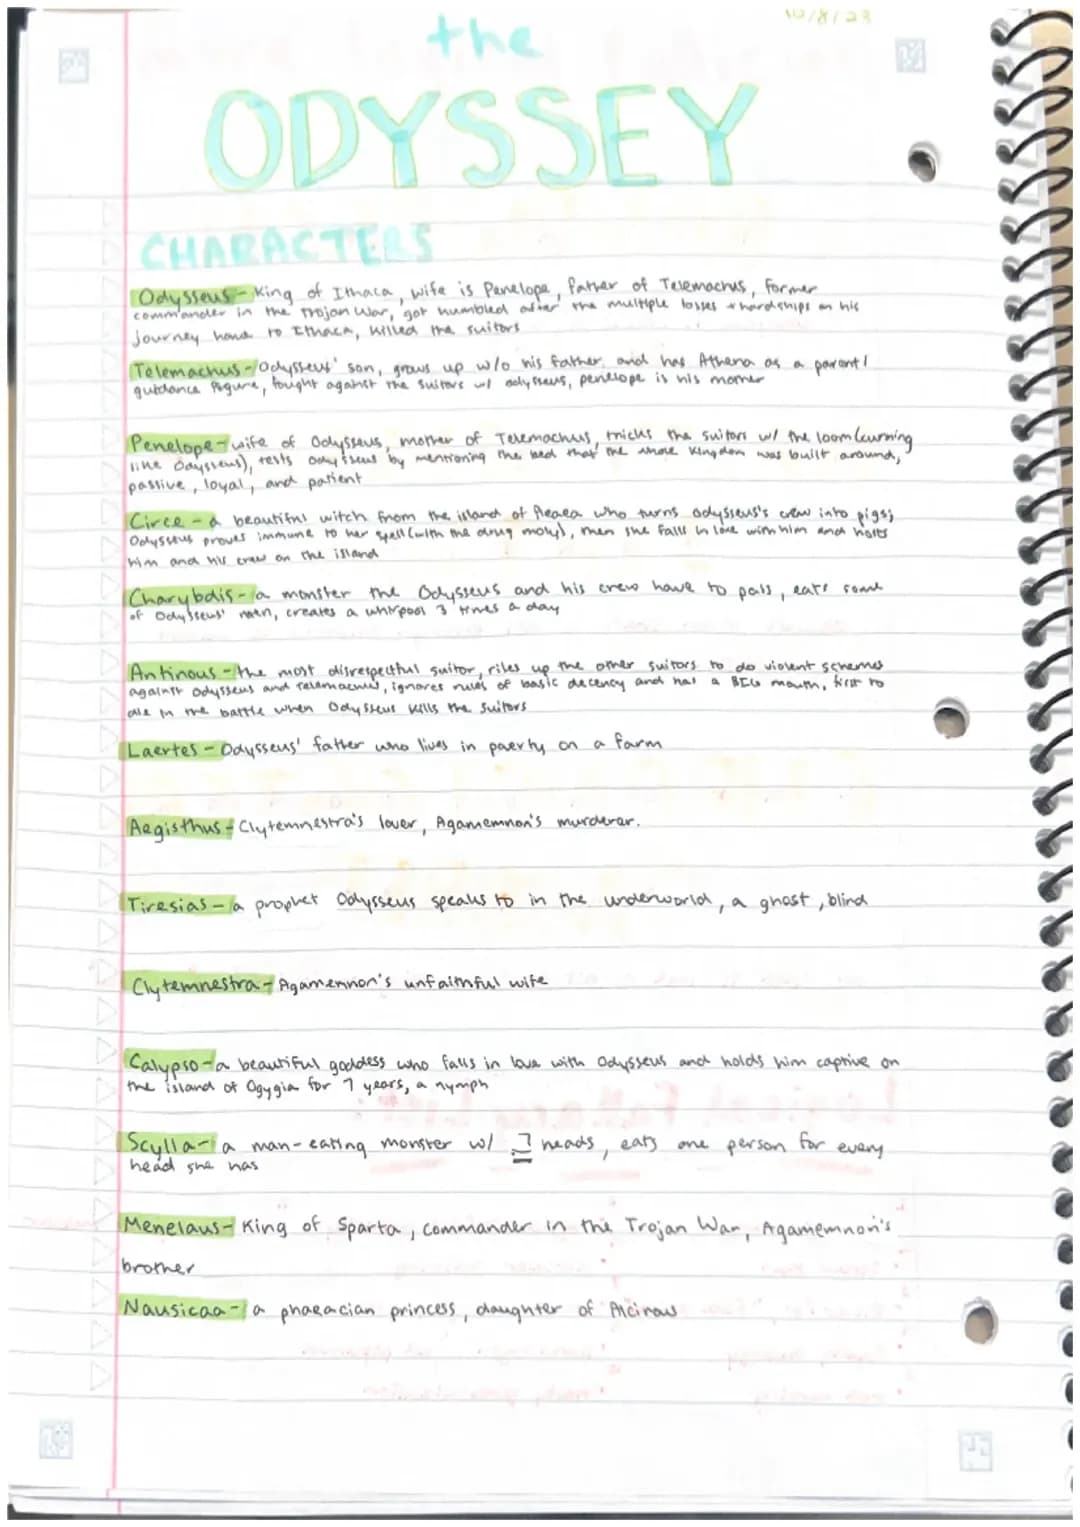 10/8/23
the
ODYSSEY
CHARACTERS
Odysseus - King of Ithaca, wife is Penelope, father of Telemachus, former
commander in the Trojan War, got humbled after the multiple losses + hardships on his
journey home to Ithaca, killed the suitors
Telemachus - Odysseus' son, grows up w/o his father, and has Athena as a parent/
guidance figure, fought against the suitors w/ odysseus, penelope is his mother
Penelope - wife of Odysseus, mother of Telemachus, tricks the suitors w/ the loom (cunning
like Odysseus), tests odysseus by mentioning the bed that the whole kingdom was built around,
passive, loyal, and patient
Circe - a beautiful witch from the island of Aeaea who turns odysseus's crew into pigs;
Odysseus proves immune to her spell (with the drug moly), then she falls in love with him and holts
him and his crew on the island
Charybdis - a monster the Odysseus and his crew have to pass, eats some
of Odysseus' men, creates a whirpool 3 times a day
Antinous - the most disrespectful suitor, riles up the other suitors to do violent schemes
against odysseus and telemachus, ignores rules of basic decency and has a BIG mouth, first to
die in the battle when Odysseus kills the suitors
Laertes - Odysseus' father who lives in poverty on a farm
Aegisthus - Clytemnestra's lover, Agamemnon's murderer.
Tiresias - a prophet Odysseus speaks to in the underworld, a ghost, blind
Clytemnestra - Agamemnon's unfaithful wife
Calypso - a beautiful goddess who falls in love with Odysseus and holds him captive on
the island of Ogygia for 7 years, a nymph
Scylla - a man-eating monster w/ 7 heads, eats one person for every
head she has
Menelaus - King of Sparta, commander in the Trojan War, Agamemnon's
brother
Nausicaa - a phaeacian princess, daughter of Alcinous